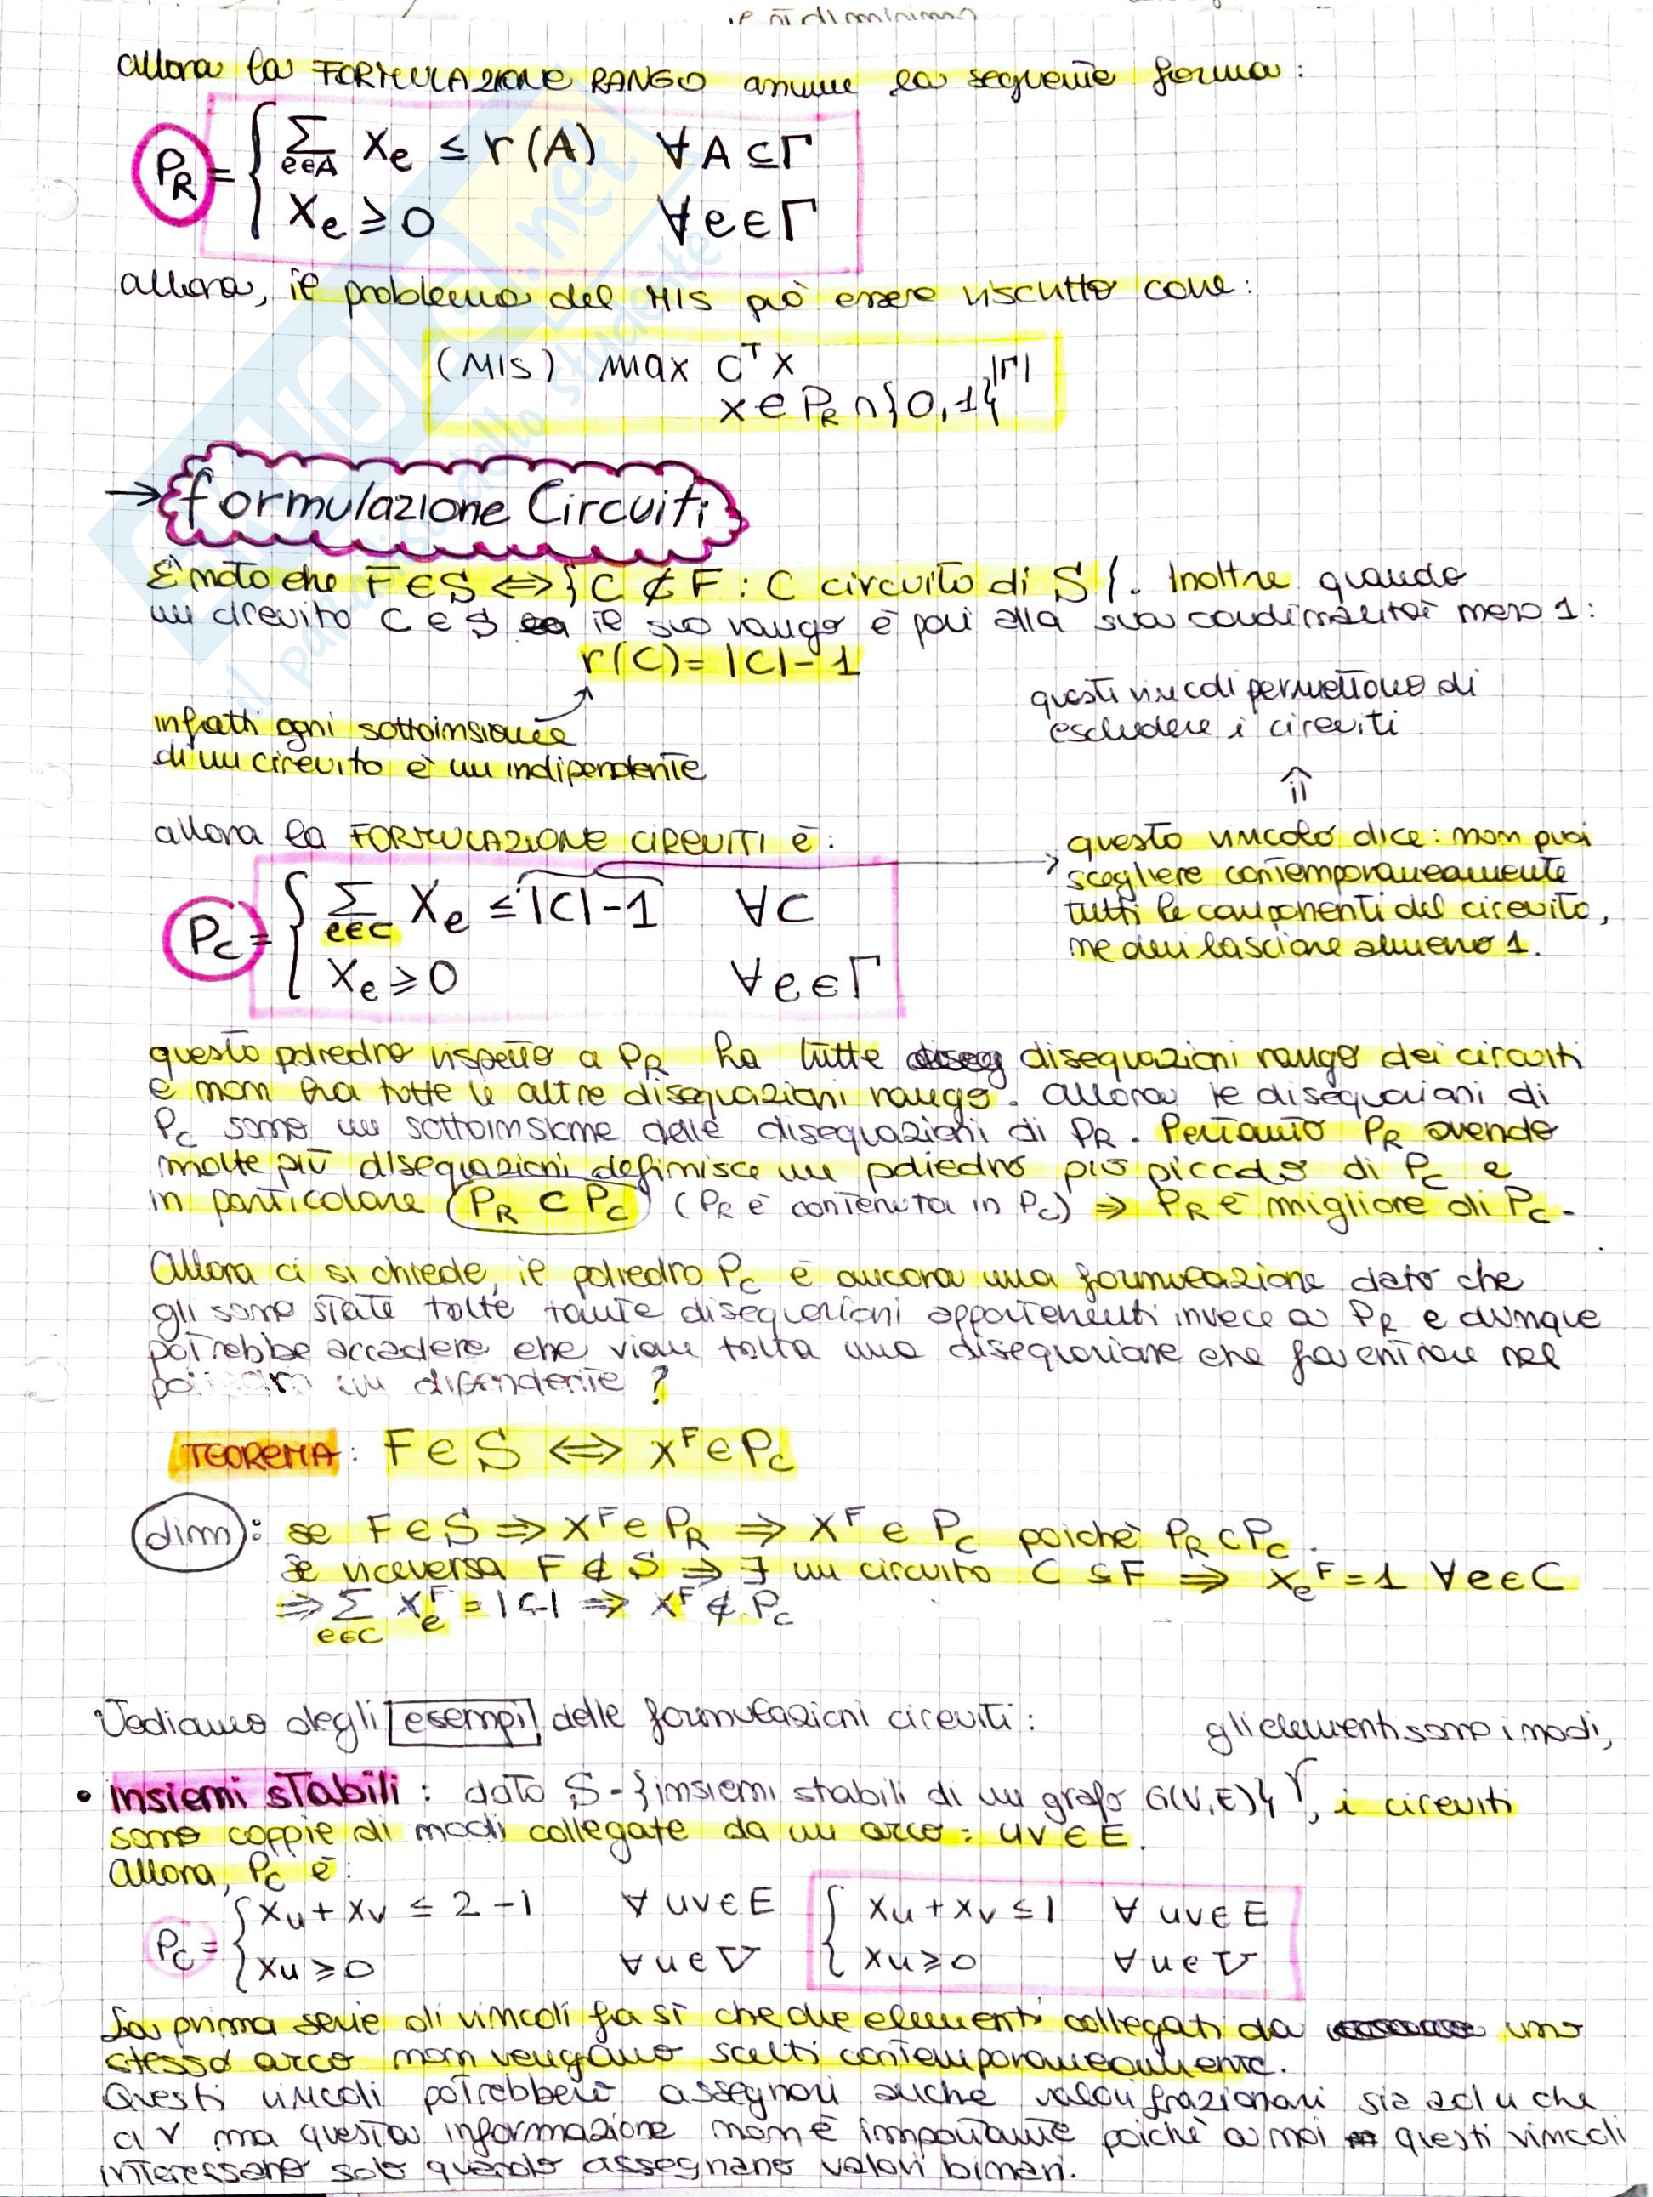 allora la FORMULAZIONE RANGO assume la seguente forma:
P_R = { ∑_{e∈A} x_e ≤ r(A) ∀A⊆Γ
x_e ≥ 0 ∀e∈Γ
allora, il problema del MIS può essere riscritto come:
(MIS) max c^T x
x ∈ P_R ∩ {0,1}^{|Γ|}
→ formulazione Circuiti
È noto che F∈S ⇔ {C ⊄ F : C circuito di S}. Inoltre quando
un circuito C ∈ S il suo rango è pari alla sua cardinalità meno 1:
r(C) = |C| - 1
infatti ogni sottoinsieme
di un circuito è un indipendente
questi vincoli permettono di
escludere i circuiti
⇑
allora la FORMULAZIONE CIRCUITI è:
P_C = { ∑_{e∈C} x_e ≤ |C| - 1 ∀C
x_e ≥ 0 ∀e∈Γ
questo vincolo dice: non puoi
scegliere contemporaneamente
tutti le componenti del circuito,
ne devi lasciare almeno 1.
questo poliedro rispetto a P_R ha tutte disequazioni rango dei circuiti
e non ha tutte le altre disequazioni rango. allora le disequazioni di
P_C sono un sottoinsieme delle disequazioni di P_R. Pertanto P_R avendo
molte più disequazioni definisce un poliedro più piccolo di P_C e
in particolare P_R ⊂ P_C (P_R è contenuta in P_C) ⇒ P_R è migliore di P_C.
Allora ci si chiede, il poliedro P_C è ancora una formulazione dato che
gli sono state tolte tante disequazioni appartenenti invece a P_R e dunque
potrebbe accadere che viene tolta una disequazione che fa entrare nel
poliedro un dipendente ?
TEOREMA: F∈S ⇔ x^F ∈ P_C
dim: se F∈S ⇒ x^F ∈ P_R ⇒ x^F ∈ P_C poichè P_R ⊂ P_C.
se viceversa F ∉ S ⇒ ∃ un circuito C ⊆ F ⇒ x_e^F = 1 ∀e∈C
⇒ ∑_{e∈C} x_e^F = |C| ⇒ x^F ∉ P_C
Vediamo degli esempi delle formulazioni circuiti:
gli elementi sono i nodi,
• Insiemi stabili : dato S = {insiemi stabili di un grafo G(V,E)}, i circuiti
sono coppie di nodi collegate da un arco : uv ∈ E.
Allora, P_C è:
P_C = { x_u + x_v ≤ 2 - 1 ∀ uv∈E { x_u + x_v ≤ 1 ∀ uv∈E
x_u ≥ 0 ∀ u∈V x_u ≥ 0 ∀ u∈V
La prima serie di vincoli fa sì che due elementi collegati da uno
stesso arco non vengano scelti contemporaneamente.
Questi vincoli potrebbero assegnare anche valori frazionari sia ad u che
a v ma questa informazione non è importante poichè a noi questi vincoli
interessano solo quando assegnano valori binari.